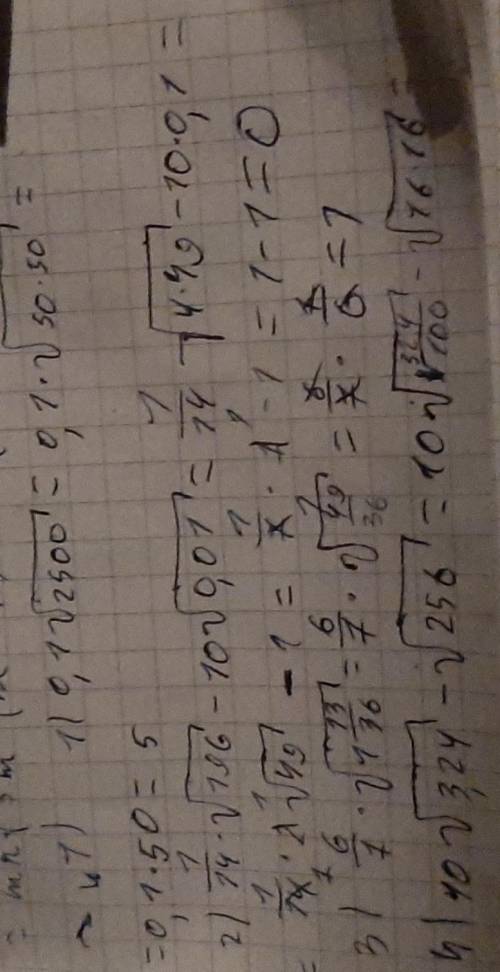 ~ 47) 1) 0,1√2500 = 0,1·√50·50 =
= 0,1·50 = 5
2) 1/14·√196 - 10√0,01 = 1/14 √4·49 - 10·0,1 =
= 1/14·2√49 - 1 = 1/7·7 - 1 = 1 - 1 = 0
3) 6/7·√1 13/36 = 6/7·√49/36 = 6/7·7/6 = 1
4) 10√3,24 - √256 = 10√324/100 - √16·16 =